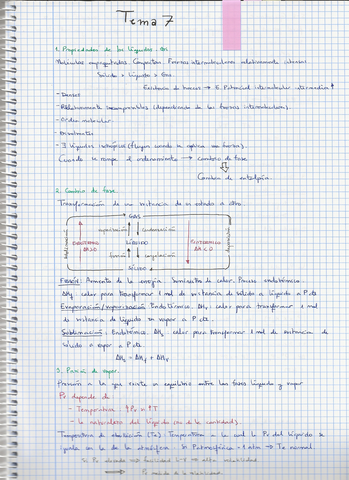 Tema 7
1. Propiedades de los líquidos
Moléculas empaquetadas. Compactas. Fuerzas intermoleculares relativamente intensas
Sólido > Líquido > Gas.
Existencia de huecos → E. Potencial intermolecular intermedia
- Densos
- Relativamente incompresibles (dependiendo de las fuerzas intermoleculares).
- Orden molecular
- 
- Líquidos isotrópicos (fluyen cuando se aplica una fuerza).
Cuando se rompe el ordenamiento → cambio de fase
Cambio de entalpía.
2. Cambio de fase.
Transformación de una sustancia de un estado a otro.
GAS
vaporización condensación
sublimación ENDOTÉRMICO LÍQUIDO EXOTÉRMICO
ΔH>0 ΔH<0
fusión congelación
SÓLIDO
FUSIÓN: Aumento de la energía. Suministro de calor. Proceso endotérmico.
calor para transformar 1 mol de sustancia de sólido a líquido a P cte
Evaporación/vaporización: Endotérmico. calor para transformar 1 mol
de sustancia de líquido en vapor a P cte.
Sublimación: Endotérmico. calor para transformar 1 mol de sustancia de
sólido a vapor a P cte
3. Presión de vapor.
Presión a la que existe un equilibrio entre las fases líquido y vapor
Pv depende de
- Temperatura ↑Pv ↑T
- la naturaleza del líquido (no de la cantidad).
Temperatura de ebullición (Te): Temperatura a la cual la Pv del líquido se
iguala con la de la atmósfera. Si Patmosférica = 1 atm → Te normal.
Si Pv elevada → alta volatilidad
Pv mide la volatilidad